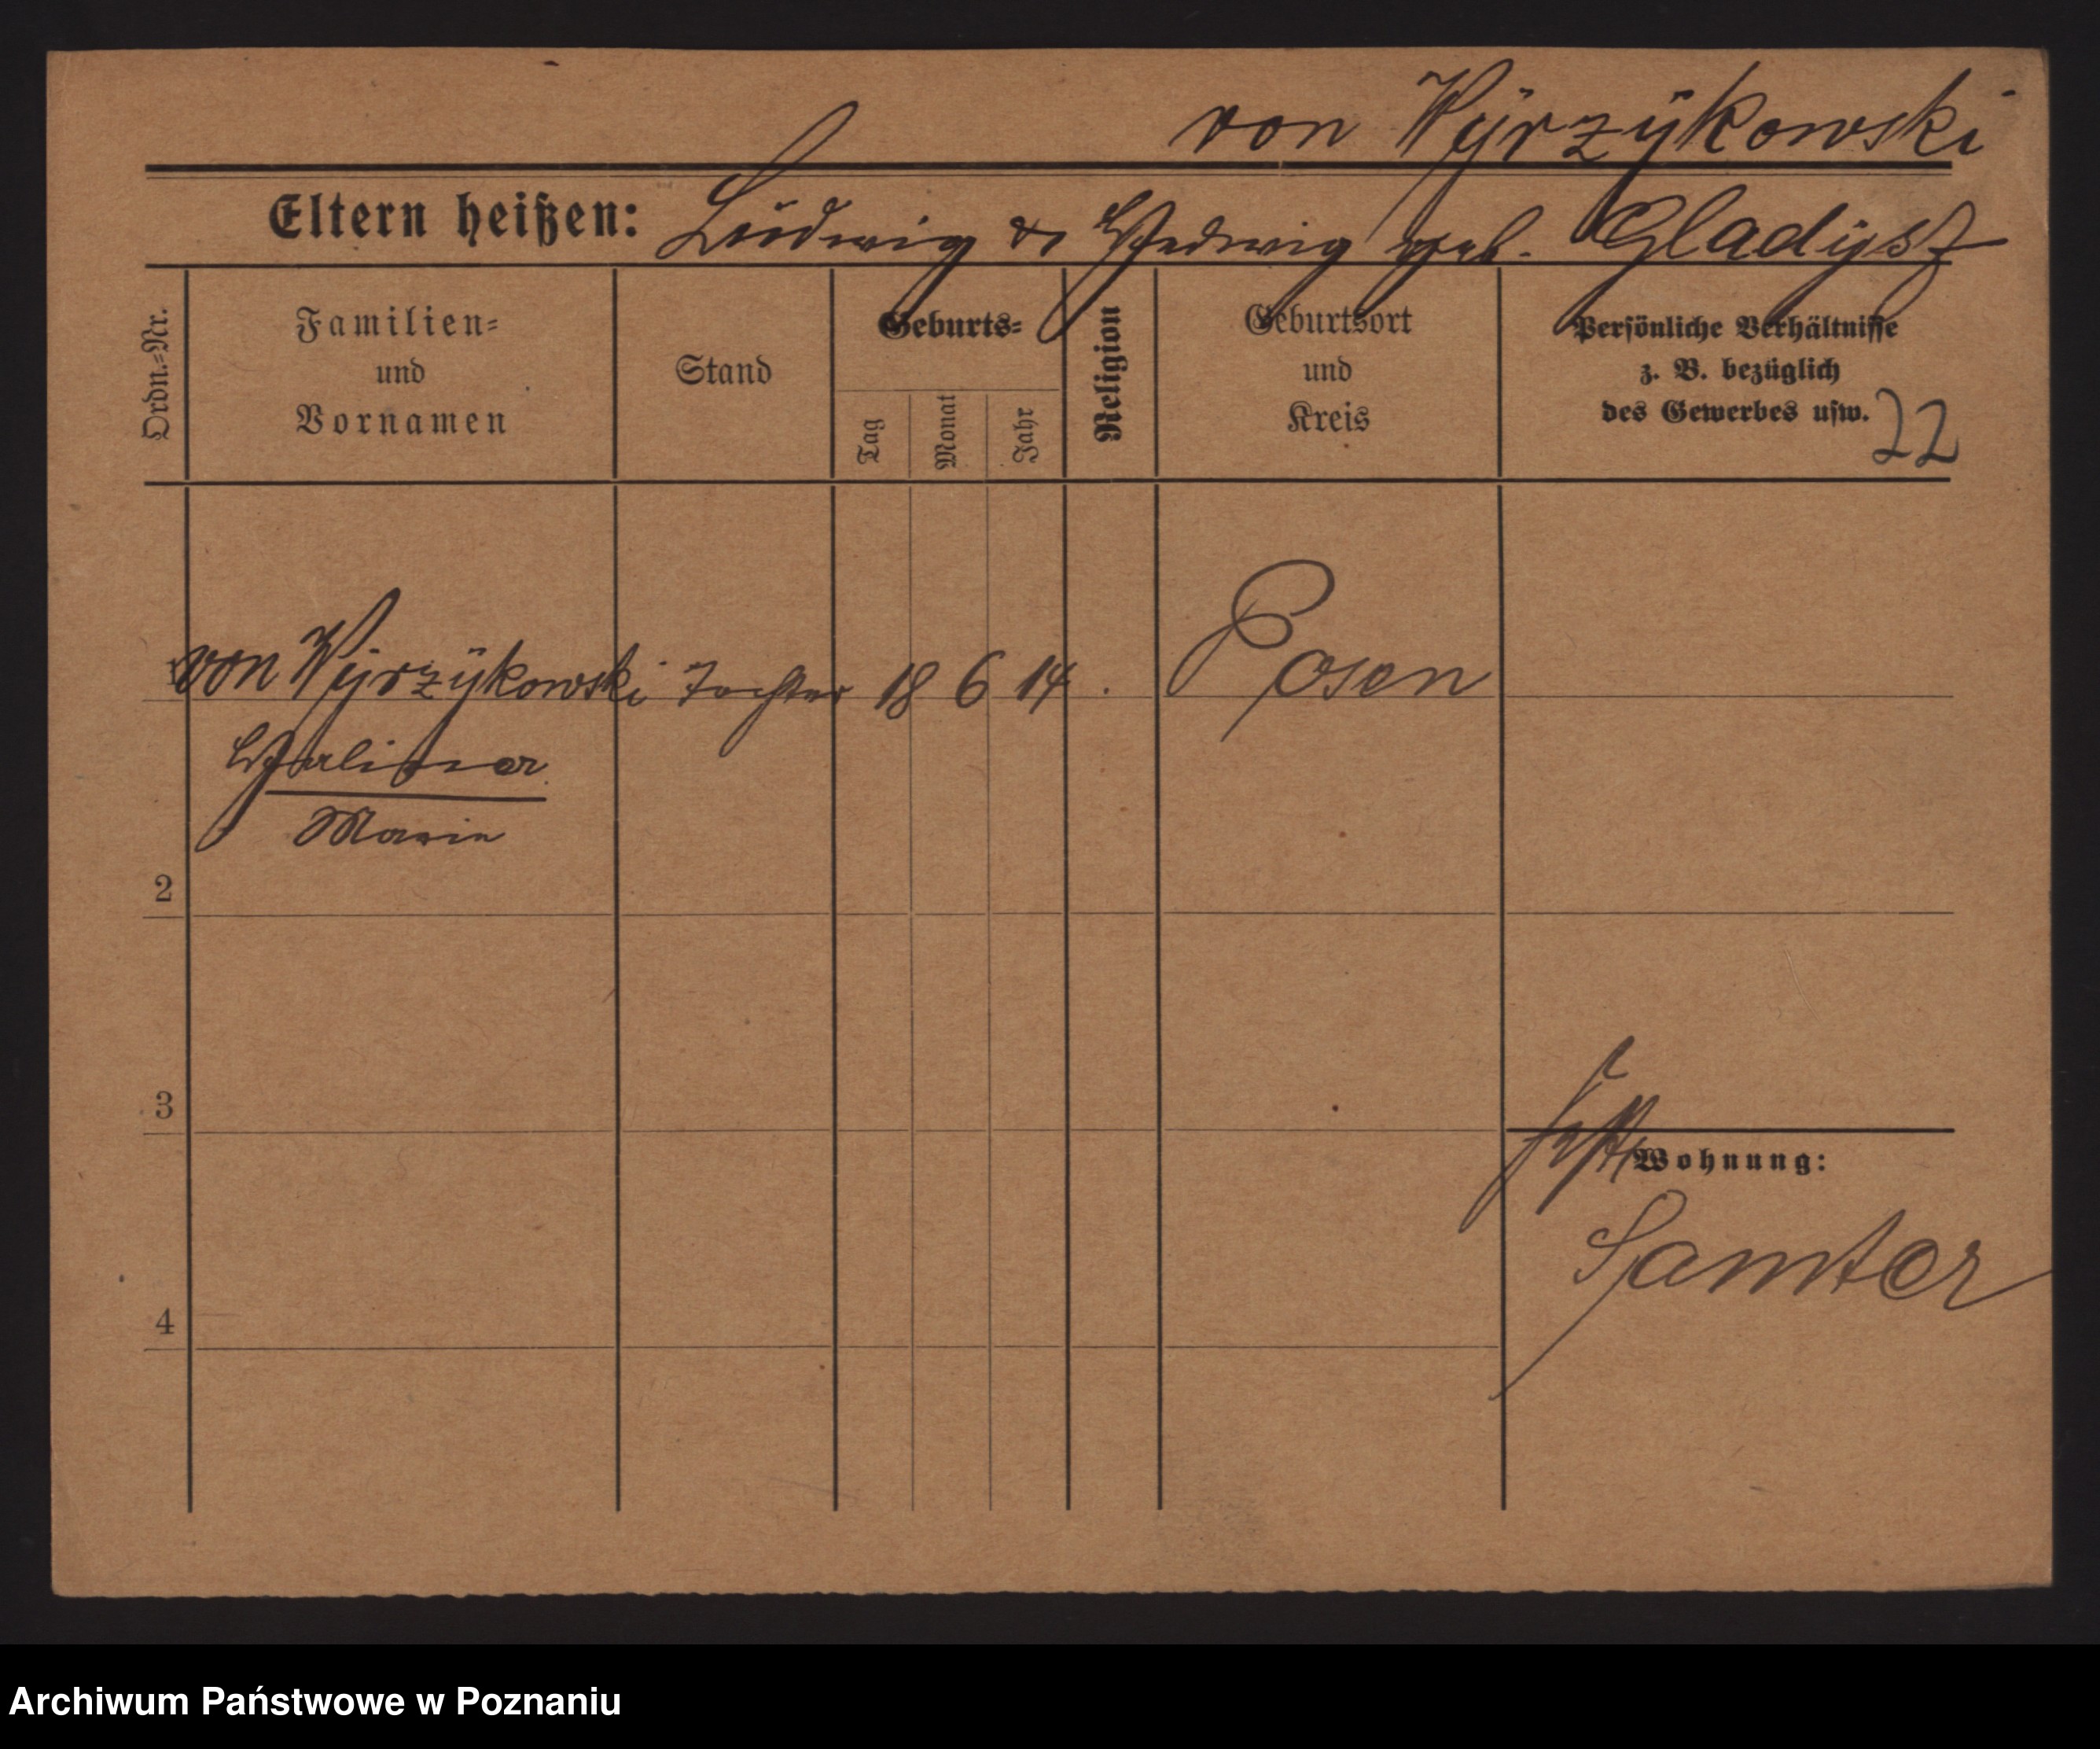 von Wyrzykowski
Eltern heißen: Ludwig & Hedwig geb. Gladysz
Ordn.-Nr.
Familien-
und
Vornamen
Stand
Geburts-
Tag
Monat
Jahr
Religion
Geburtsort
und
Kreis
Persönliche Verhältnisse
z. B. bezüglich
des Gewerbes usw.
22
1 von Wyrzykowski Tochter 18 6 14. Posen
Halina
Marie
2
3
Wohnung:
Samter
4
Archiwum Państwowe w Poznaniu